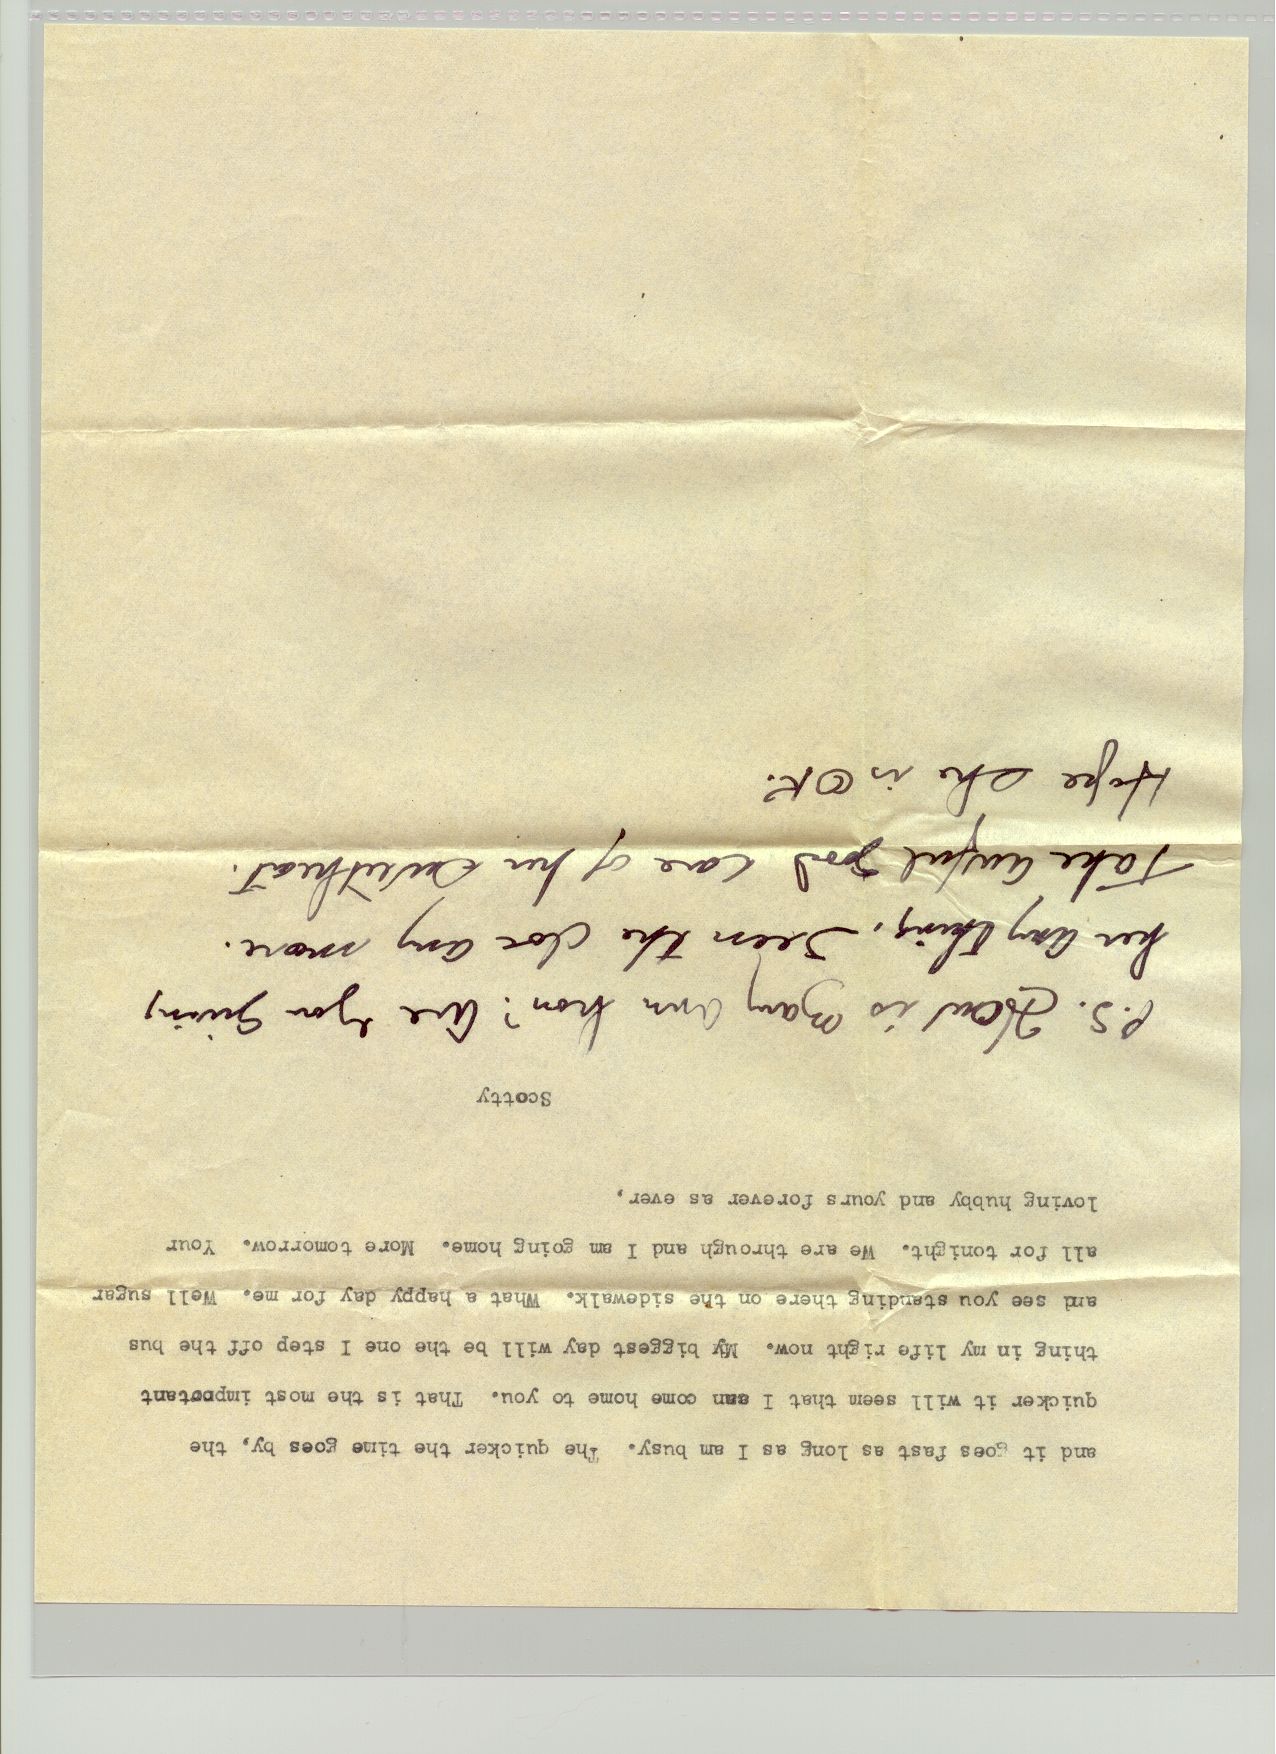 and it goes fast as long as I am busy.  The quicker the time goes by, the
quicker it will seem that I can come home to you.  That is the most important
thing in my life right now.  My biggest day will be the one I step off the bus
and see you standing there on the sidewalk.  What a happy day for me.  Well sugar
all for tonight.  We are through and I am going home.  More tomorrow.  Your
loving hubby and yours forever as ever,
Scotty
P.S. How is Mary Ann hon? Are you giving
her any thing. Seen the doc any more.
Take awful good care of her sweetheat.
Hope she is OK.